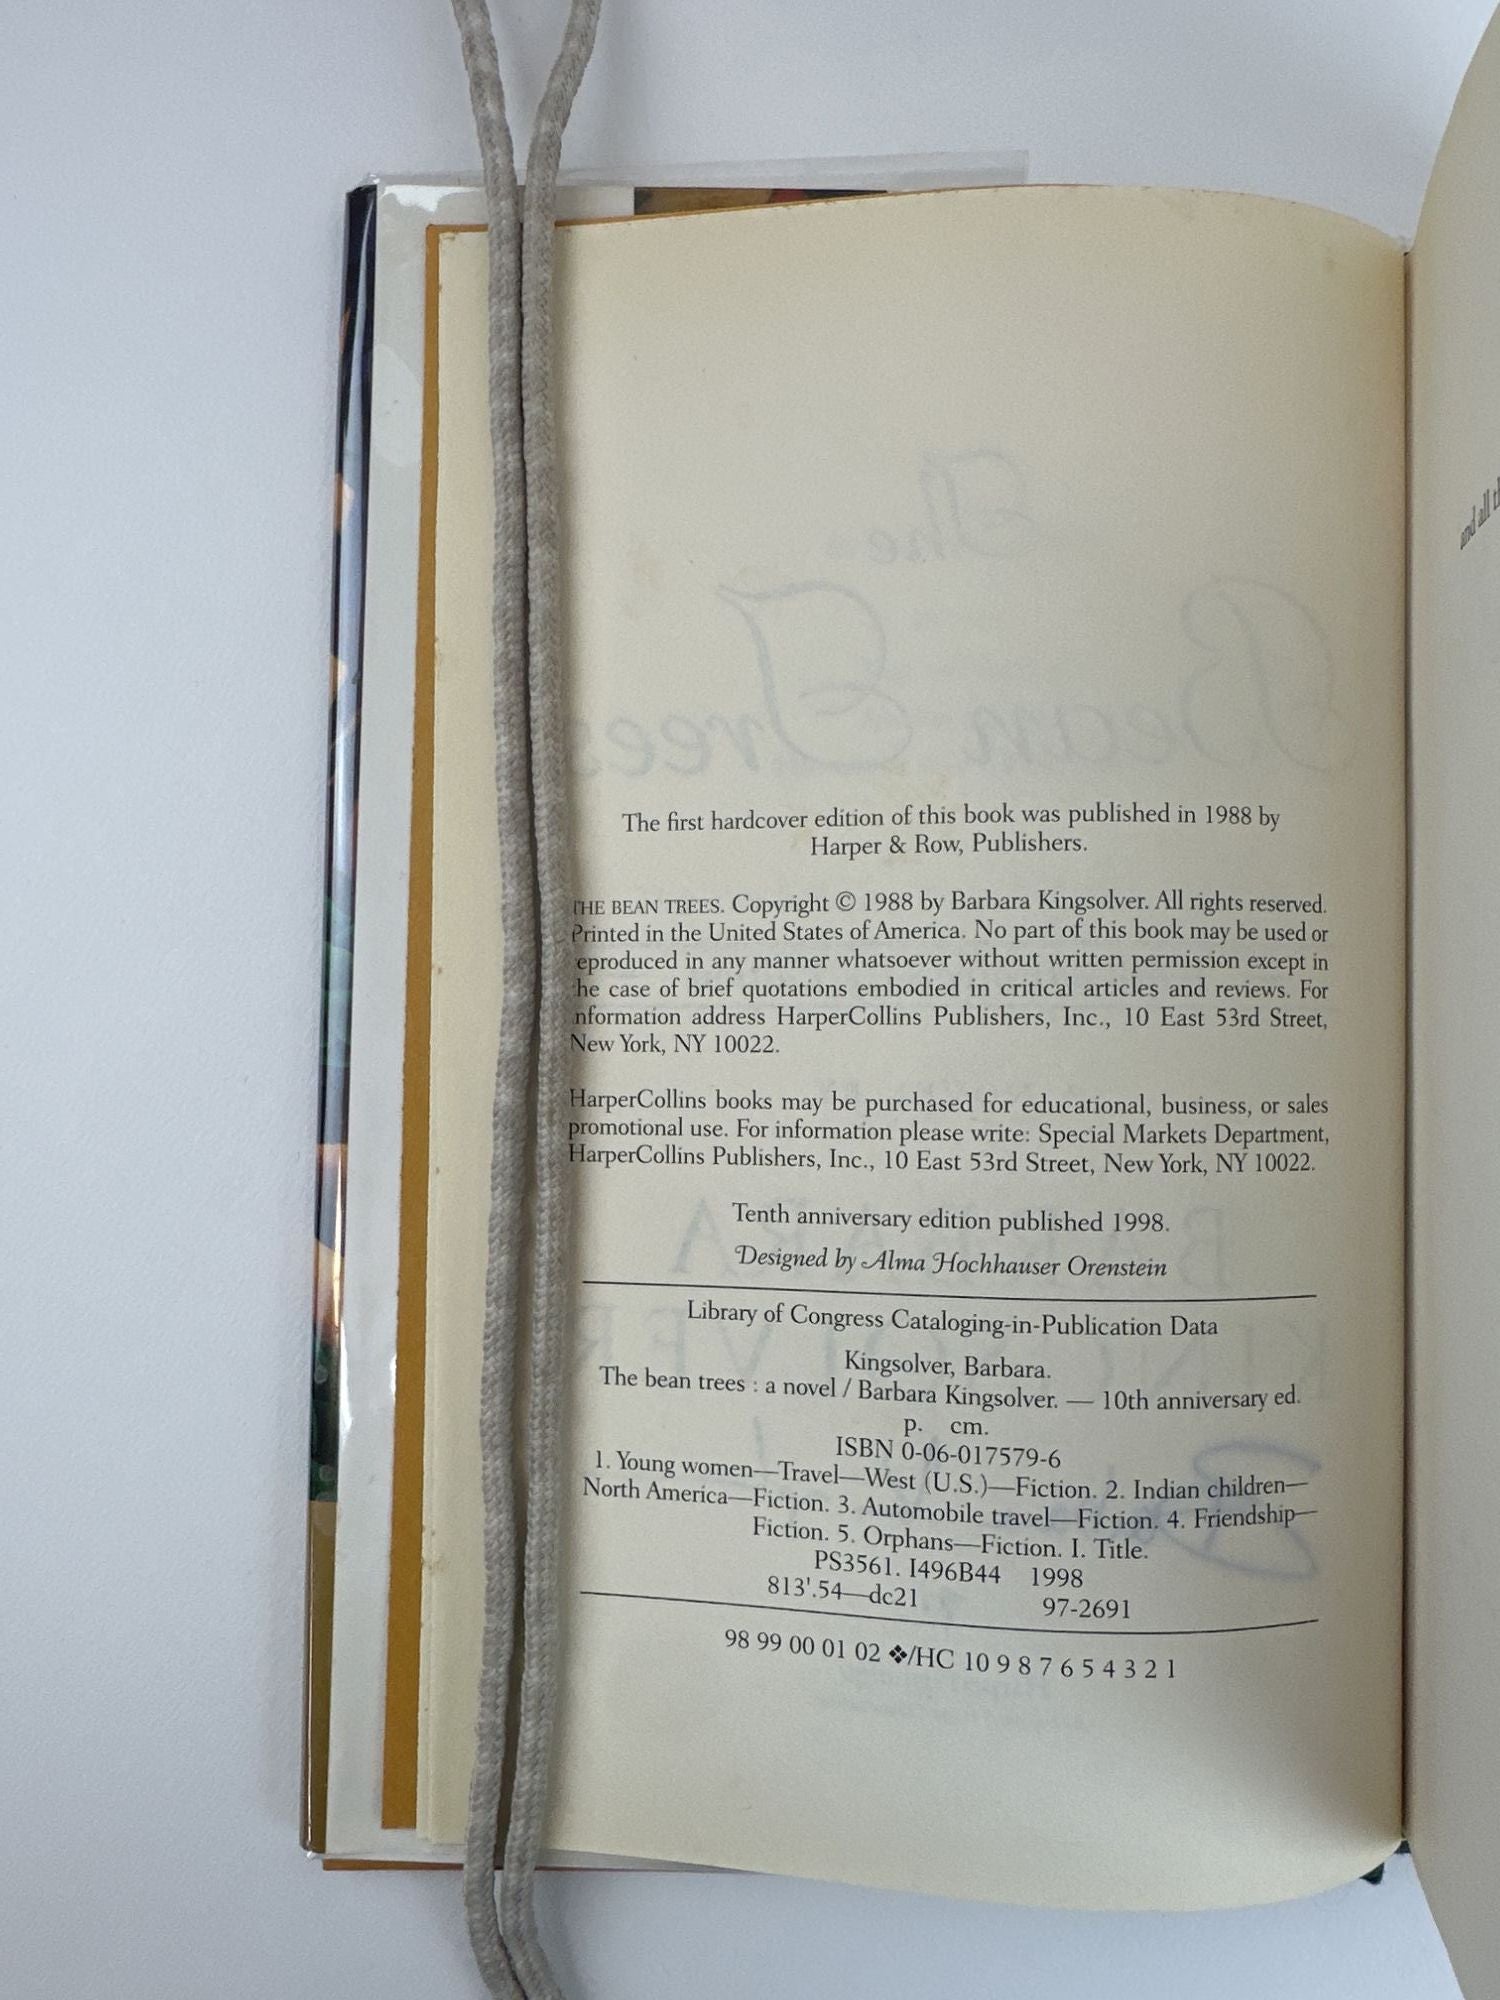 The
Bean Trees
The first hardcover edition of this book was published in 1988 by
Harper & Row, Publishers.
THE BEAN TREES. Copyright © 1988 by Barbara Kingsolver. All rights reserved.
Printed in the United States of America. No part of this book may be used or
eproduced in any manner whatsoever without written permission except in
he case of brief quotations embodied in critical articles and reviews. For
nformation address HarperCollins Publishers, Inc., 10 East 53rd Street,
New York, NY 10022.
HarperCollins books may be purchased for educational, business, or sales
promotional use. For information please write: Special Markets Department,
HarperCollins Publishers, Inc., 10 East 53rd Street, New York, NY 10022.
Tenth anniversary edition published 1998.
Designed by Alma Hochhauser Orenstein
Library of Congress Cataloging-in-Publication Data
Kingsolver, Barbara.
The bean trees : a novel / Barbara Kingsolver. — 10th anniversary ed.
p. cm.
ISBN 0-06-017579-6
1. Young women—Travel—West (U.S.)—Fiction. 2. Indian children—
North America—Fiction. 3. Automobile travel—Fiction. 4. Friendship—
Fiction. 5. Orphans—Fiction. I. Title.
PS3561. I496B44 1998
813'.54—dc21 97-2691
98 99 00 01 02 ❖/HC 10 9 8 7 6 5 4 3 2 1
and all